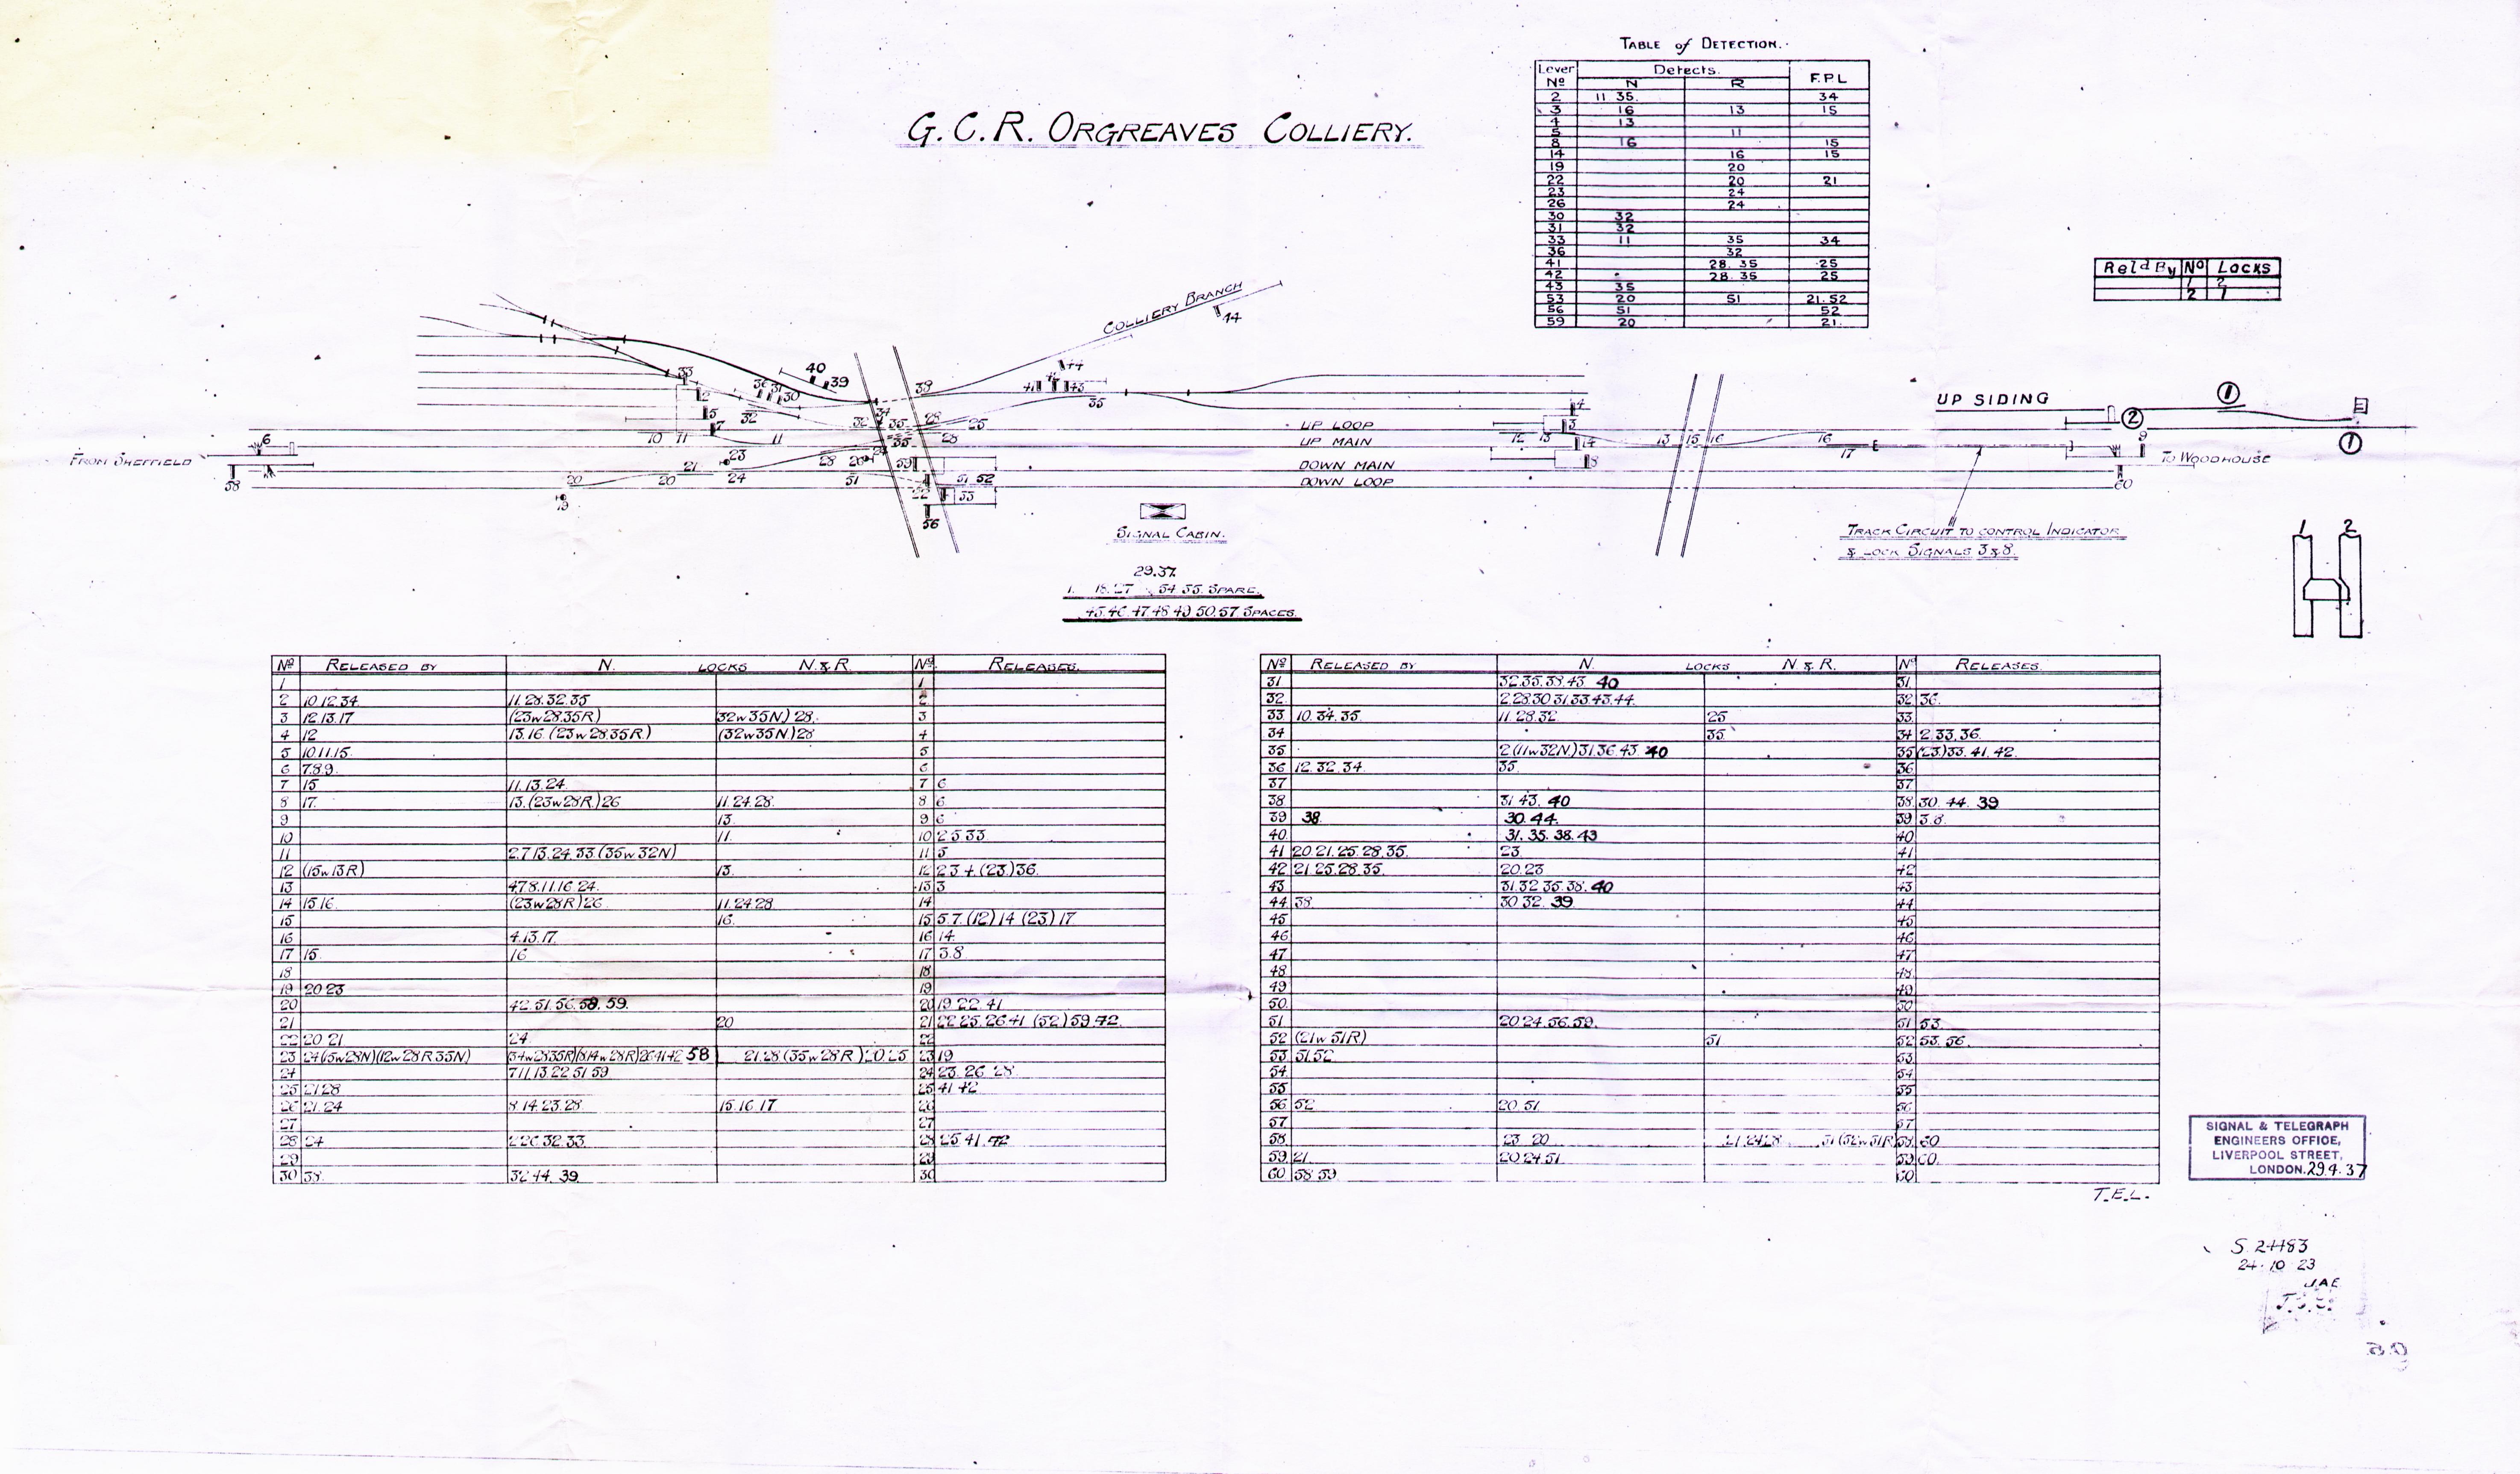 TABLE of DETECTION.
Lever Nº Detects. F.P.L
N R
2 11 35. 34
3 16 13 15
4 13
5 11
8 16 15
14 16 15
19 20
22 20 21
23 24
26 24
30 32
31 32
33 11 35 34
36 32
41 28. 35 25
42 28. 35 25
43 35
53 20 51 21. 52
56 51 52
59 20 21.
G. C. R. ORGREAVES COLLIERY.
Rel'd By Nº Locks
1 2
2 1
COLLIERY BRANCH
44
40
39
UP SIDING
1
2
UP LOOP
UP MAIN
DOWN MAIN
DOWN LOOP
FROM SHEFFIELD
TO WOODHOUSE
SIGNAL CABIN.
TRACK CIRCUIT TO CONTROL INDICATOR
& LOCK SIGNALS 3 & 8.
1 2
29.37.
45.46.47.48.49.50.57. SPACES.
Nº RELEASED BY N. LOCKS N. & R. Nº RELEASES.
1 1
2 10.12.34. 11.28.32.35 2
3 12.13.17 (23w28.35R) (32w35N) 28. 3
4 12 13.16.(23w28.35R.) (32w35N.) 28 4
5 10.11.15. 5
6 7.8.9. 6
7 15 11.13.24. 7 6
8 17. 13.(23w28R.) 26 11.24.28. 8 6
9 13. 9 6
10 11. 10 2.5.33
11 2.7.13.24.33.(35w32N) 11 5
12 (15w13R) 13. 12 2.3.4.(23.)36.
13 4.7.8.11.16.24. 13 3
14 15.16. (23w28R) 26 11.24.28 14
15 16. 15 5.7.(12)14 (23) 17
16 4.13.17. 16 14.
17 15. 16 17 3.8.
18 18
19 20.23 19
20 42.51.56.58.59. 20 19.22.41
21 20 21 22.25.26.41 (52) 59.42.
22 20.21 24. 22
23 24(15w28N)(12w28R35N) (34w2835R)(814w28R)26 41 42 58 21.28 (35w28R) 20.25 23 19
24 7.11.13.22.51.59 24 23.26.28
25 21.28 25 41.42
26 21.24 8.14.23.28 15.16.17 26
27 27
28 24 2.26.32.33. 28 25.41.42
29 29
30 38. 32.44.39. 30
Nº RELEASED BY N. LOCKS N. & R. Nº RELEASES.
31 32.35.38.43. 40 31.
32 2.28.30.31.33.43.44. 32 36.
33 10.34.35. 11.28.32. 25 33.
34 35. 34 2.33.36.
35 2(11w32N)31.36.43. 40 35 (23.)33.41.42.
36 12.32.34. 35. 36
37 37
38 31.43. 40 38 30.44. 39
39 38. 30.44. 39 38.
40 31.35.38.43 40
41 20.21.25.28.35. 23. 41
42 21.25.28.35. 20.23 42
43 31.32.35.38. 40 43
44 38. 30.32. 39 44
45 45
46 46
47 47
48 48
49 49
50 50
51 20.24.56.59. 51 53.
52 (21w51R) 51 52 53.56.
53 51.52 53
54 54
55 55
56 52 20.51 56
57 57
58 23. 20 21.24.28 51(52w51R) 58 60
59 21. 20.24.51 59 60.
60 58.59 60
T.E.L.
SIGNAL & TELEGRAPH
ENGINEERS OFFICE,
LIVERPOOL STREET,
LONDON. 29.4.37
S. 24183
24.10.23
J.A.E.